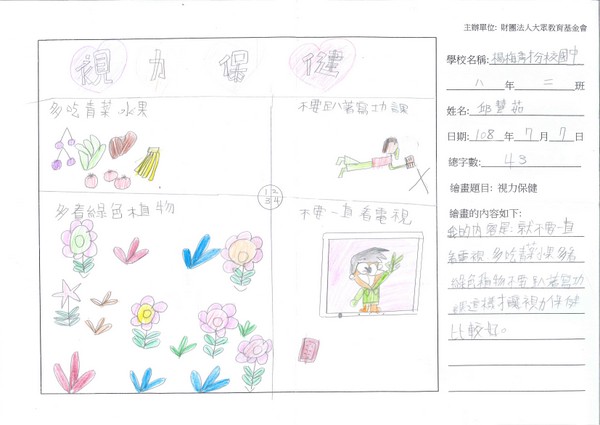 主辦單位: 財團法人大眾教育基金會
視力保健
多吃青菜水果
不要趴著寫功課
多看綠色植物
不要一直看電視
1 2
3 4
學校名稱:
八 年 二 班
姓名: 邱慧茹
日期: 108 年 7 月 7 日
總字數: 43
繪畫題目: 視力保健
繪畫的內容如下:
就不要一直
看電視 多吃青菜水果 多看
綠色植物不要趴著寫功
課這樣才讓視力保健
比較好。